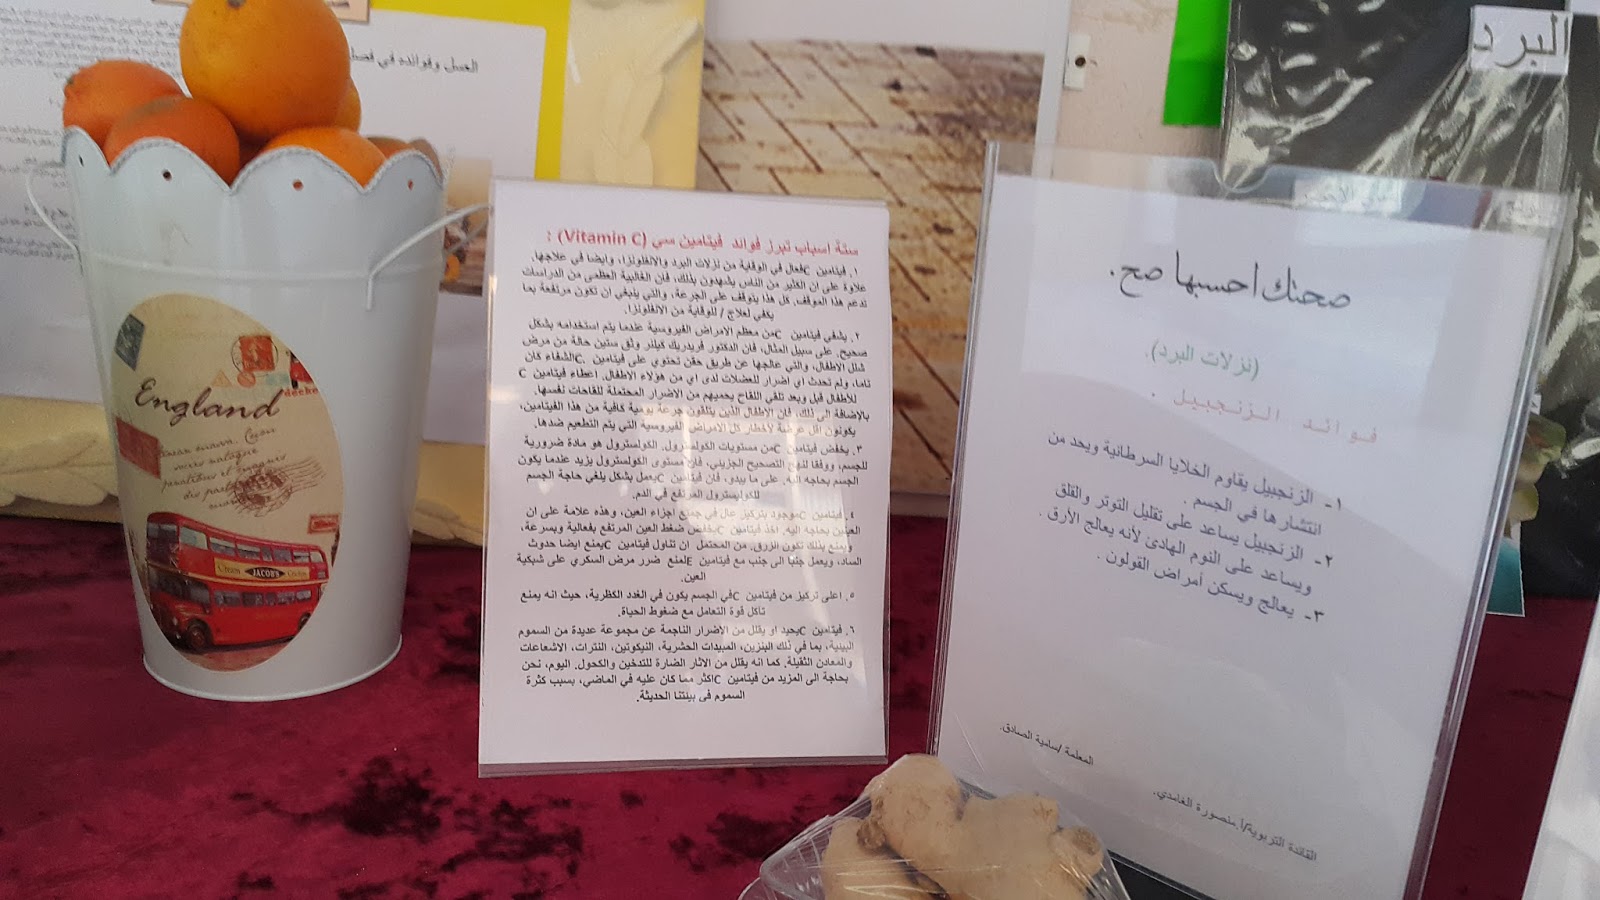 البرد
العسل وفوائده في فصل
England
JACOB'S
ستة اسباب تبرز فوائد فيتامين سي (Vitamin C) :
١. فيتامين Cفعال في الوقاية من نزلات البرد والانفلونزا، وايضا في علاجها.
علاوة على ان الكثير من الناس يشهدون بذلك، فان الغالبية العظمى من الدراسات
تدعم هذا الموقف. كل هذا يتوقف على الجرعة، والتي ينبغي ان تكون مرتفعة بما
يكفي لعلاج / للوقاية من الانفلونزا.
٢. يشفي فيتامين Cمن معظم الامراض الفيروسية عندما يتم استخدامه بشكل
صحيح. على سبيل المثال، فان الدكتور فريدريك كيلنر وثق ستين حالة من مرض
شلل الاطفال، والتي عالجها عن طريق حقن تحتوي على فيتامين .Cالشفاء كان
تاما، ولم تحدث اي اضرار للعضلات لدى اي من هؤلاء الاطفال. اعطاء فيتامين C
للاطفال قبل وبعد تلقي اللقاح يحميهم من الاضرار المحتملة للقاحات نفسها.
بالإضافة الى ذلك، فان الاطفال الذين يتلقون جرعة يومية كافية من هذا الفيتامين،
يكونون اقل عرضة لأخطار كل الامراض الفيروسية التي يتم التطعيم ضدها.
٣. يخفض فيتامين Cمن مستويات الكولسترول. الكولسترول هو مادة ضرورية
للجسم، ووفقا لنهج التصحيح الجزيئي، فان مستوى الكولسترول يزيد عندما يكون
الجسم بحاجه اليه. على ما يبدو، فان فيتامين Cيعمل بشكل يلغي حاجة الجسم
للكوليسترول المرتفع في الدم.
٤. فيتامين Cموجود بتركيز عال في جميع اجزاء العين، وهذه علامة على ان
العينين بحاجه اليه. اخذ فيتامين Cيخفض ضغط العين المرتفع بفعالية وبسرعة،
ويمنع بذلك تكون الزرق. من المحتمل ان تناول فيتامين Cيمنع ايضا حدوث
الساد، ويعمل جنبا الى جنب مع فيتامين Eلمنع ضرر مرض السكري على شبكية
العين.
٥. اعلى تركيز من فيتامين Cفي الجسم يكون في الغدد الكظرية، حيث انه يمنع
تآكل قوة التعامل مع ضغوط الحياة.
٦. فيتامين Cيحيد او يقلل من الاضرار الناجمة عن مجموعة عديدة من السموم
البيئية، بما في ذلك البنزين، المبيدات الحشرية، النيكوتين، النترات، الاشعاعات
والمعادن الثقيلة. كما انه يقلل من الاثار الضارة للتدخين والكحول. اليوم، نحن
بحاجة الى المزيد من فيتامين Cاكثر مما كان عليه في الماضي، بسبب كثرة
السموم في بيئتنا الحديثة.
صحتك احسبها صح.
(نزلات البرد).
فوائد الزنجبيل .
١- الزنجبيل يقاوم الخلايا السرطانية ويحد من
انتشارها في الجسم .
٢- الزنجبيل يساعد على تقليل التوتر والقلق
ويساعد على النوم الهادئ لأنه يعالج الأرق .
٣- يعالج ويسكن أمراض القولون .
المعلمة /سامية الصادق.
القائدة التربوية/أ.منصورة الغامدي.